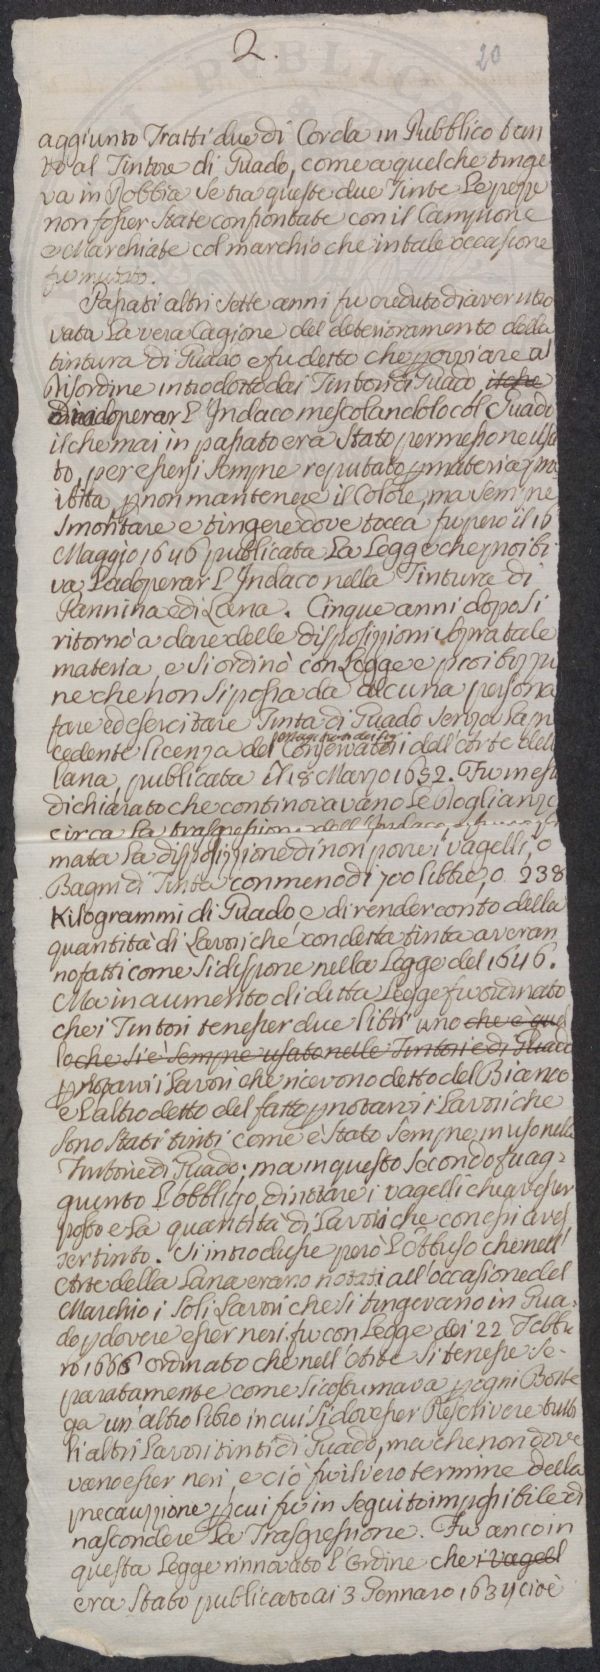 2.
20
aggiunto Tratti due di Corda in Pubblico tan
to al Tintore di Guado, come a quel che tinge
va in Robbia se tra queste due Tinte Le pezze
non fosser State confrontate con il Campione
e Marchiate col marchio che in tale occasione
fu mutato.
Passati altri Sette anni fu creduto d'aver ritro
vata La vera Cagione del deterioramento della
tintura di Guado e fu detto che provviare al
Disordine introdotto dai Tintori di Guado
adoperar L'Indaco mescolandolo col Guado
il che mai in passato era Stato permesso ne Usa
to, per essersi Sempre reputato p materia pro
ibita, p non mantenere il Colore, ma Sempre
Smontare e tingere dove tocca fu pero il 16
Maggio 1646 publicata La Legge che proibi
va L'adoperar L'Indaco nella Tintura di
Pannina e di Lana. Cinque anni dopo Si
ritornò a dare delle disposizioni Sopra tale
materia, e Si ordinò con Legge e proibizio
ne che non Si possa da alcuna persona
fare ed esercitare Tinta di Guado Senza La pre
cedente licenza del Conservatori dell'Arte della
lana, publicata il 18 Marzo 1652. Fu in essa
dichiarato che continovavano Le
circa La trasgressione dell'Indaco,
mata La disposizione di non porre i vagelli, o
Bagni di Tinta con meno di 700 libbre, o 238
Kilogrammi di Guado, e di render conto della
quantità di Lavori che con detta tinta averan
no fatti come Si dispone nella Legge del 1646.
Ma in aumento di detta Legge fu ordinato
che i Tintori tenesser due libri uno che è quel
lo che si è Sempre usato nelle Tintorie di Guado
p notarvi i Lavori che ricevono detto del Bianco
e L'altro detto del fatto p notarvi i Lavori che
Sono Stati tinti come è Stato Sempre in uso nelle
Tintorie di Guado; ma in questo Secondo fu ag=
giunto L'obbligo di notare i vagelli che avesser
posto e La quantità di Lavori che con essi aves
ser tinto. Si introdusse però L'Abuso che nell'
Arte della Lana erano notati all'occasione del
Marchio i Soli Lavori che Si tingevano in Gua=
do p dovere esser neri fu con Legge dei 22 Febbr
ro 1665 ordinato che nell'Arte Si tenesse Se=
paratamente come Si costumava p ogni Botte
ga un'altro libro in cui Si dovesser Descrivere tutti
li altri Lavori tinti di Guado, ma che non dove
vano esser neri, e ciò fu il vero termine della
precauzione p cui fu in Seguito impossibile di
nascondere La Trasgressione. Fu anco in
questa Legge rinnovato l'Ordine che i vagell
era Stato publicato ai 3 Gennaro 1634 cioè